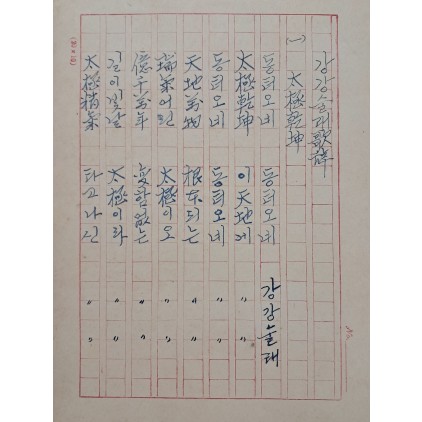 강강술래歌辭
(一) 太極乾坤
동터오네 동터오네 강강술래
太極乾坤 이天地에 〃 〃
동터오네 동터오네 〃 〃
天地萬物 根本되는 〃 〃
瑞氣어린 太極이오 〃 〃
億千萬年 變함없는 〃 〃
길이빛날 太極이라 〃 〃
太極精氣 타고나신 〃 〃